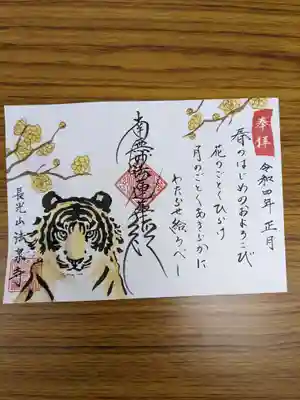 奉拝
令和四年 正月
春のはじめのおよろこび
花のごとくひらけ
月のごとくあきらかに
わたらせ給うべし
南無妙法蓮華経
長光山 法泉寺